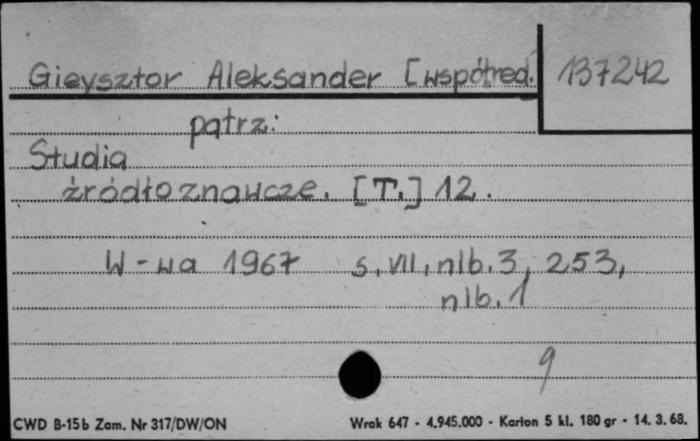 Gieysztor Aleksander [współred.
137242
patrz:
Studia
źródłoznawcze. [T.] 12.
W-wa 1967 s. VII, nlb. 3, 253,
nlb. 1
9
CWD B-15b Zam. Nr 317/DW/ON
Wrak 647 - 4.945.000 - Karton 5 kl. 180 gr - 14. 3. 68.